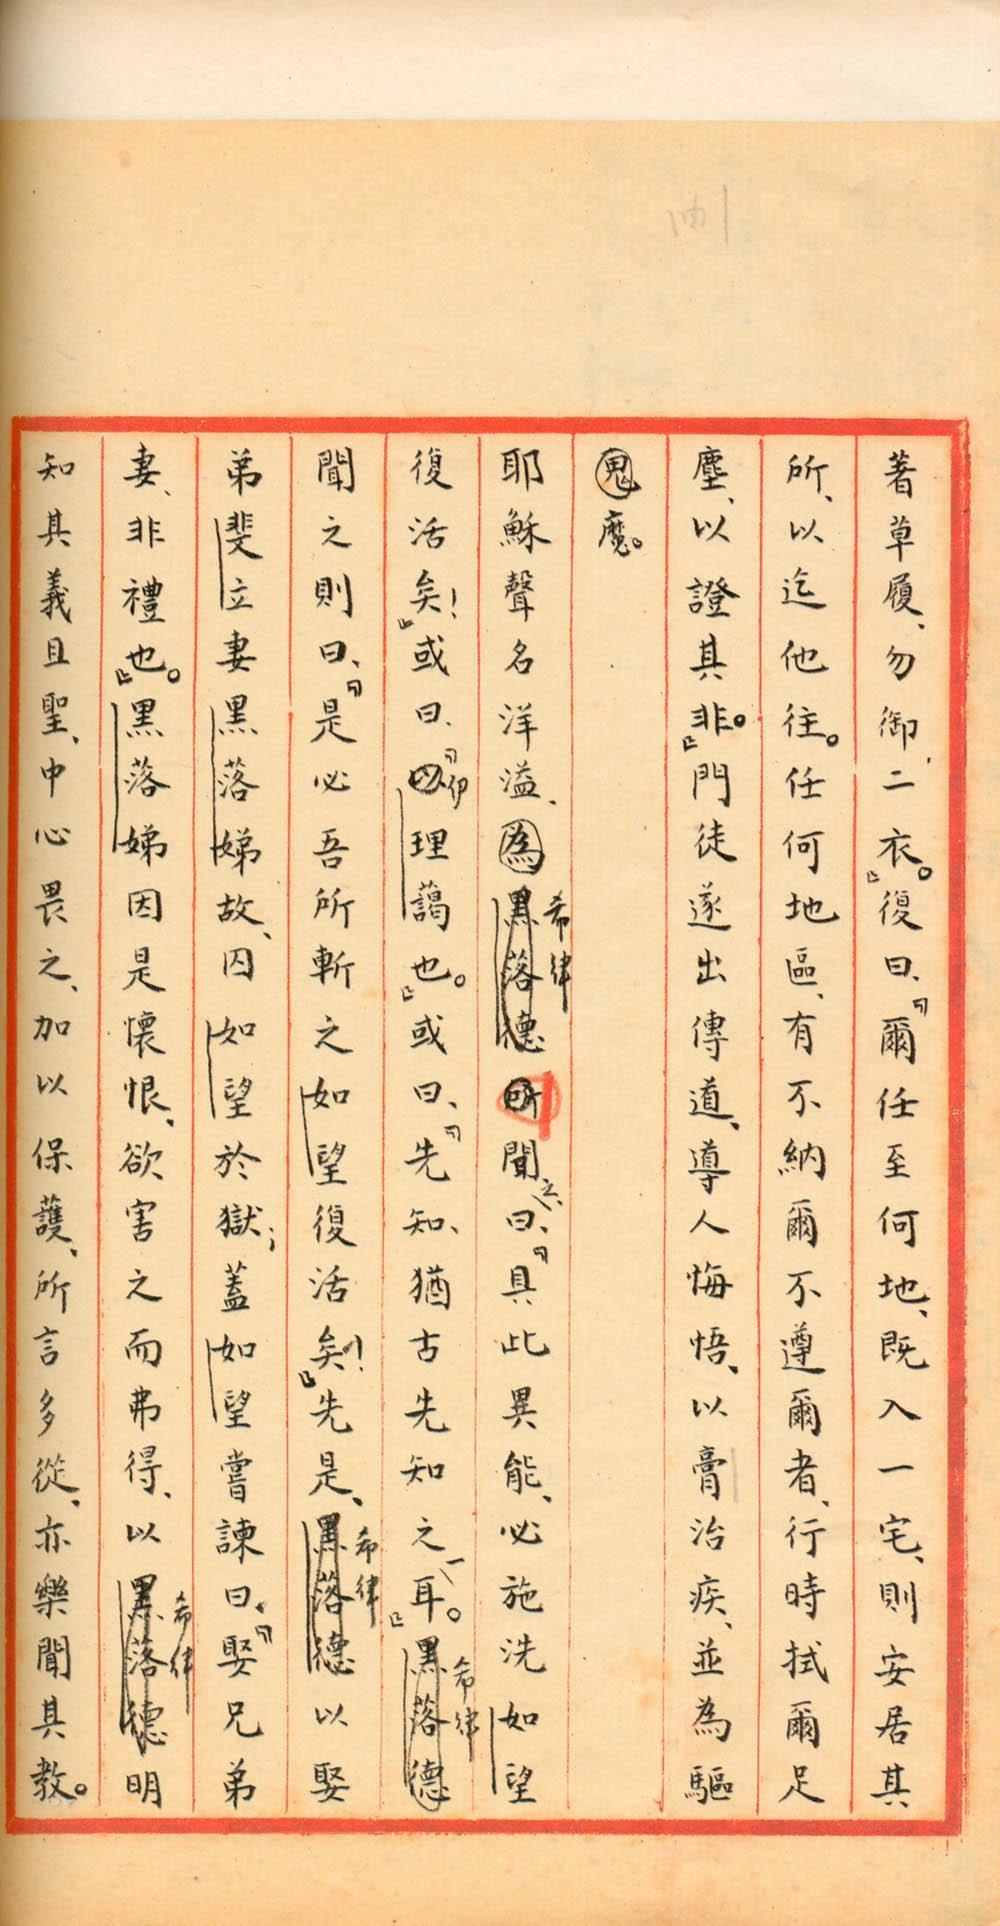 著草履、勿御二衣。』復曰、『爾任至何地、既入一宅、則安居其
所、以迄他往。任何地區、有不納爾不遵爾者、行時拭爾足
塵、以證其非。』門徒遂出傳道、導人悔悟、以膏治疾、並為驅
鬼魔。
耶穌聲名洋溢、為黑落德所聞曰、『具此異能、必施洗如望
希律
之、
復活矣！』或曰、『理藹也。』或曰、『先知、猶古先知之一耳。』黑落德
伊
希律
聞之則曰、『是必吾所斬之如望復活矣！』先是、黑落德以娶
希律
弟斐立妻黑落娣故、囚如望於獄；蓋如望嘗諫曰、『娶兄弟
妻、非禮也。』黑落娣因是懷恨、欲害之而弗得、以黑落德明
希律
知其義且聖、中心畏之、加以保護、所言多從、亦樂聞其教。